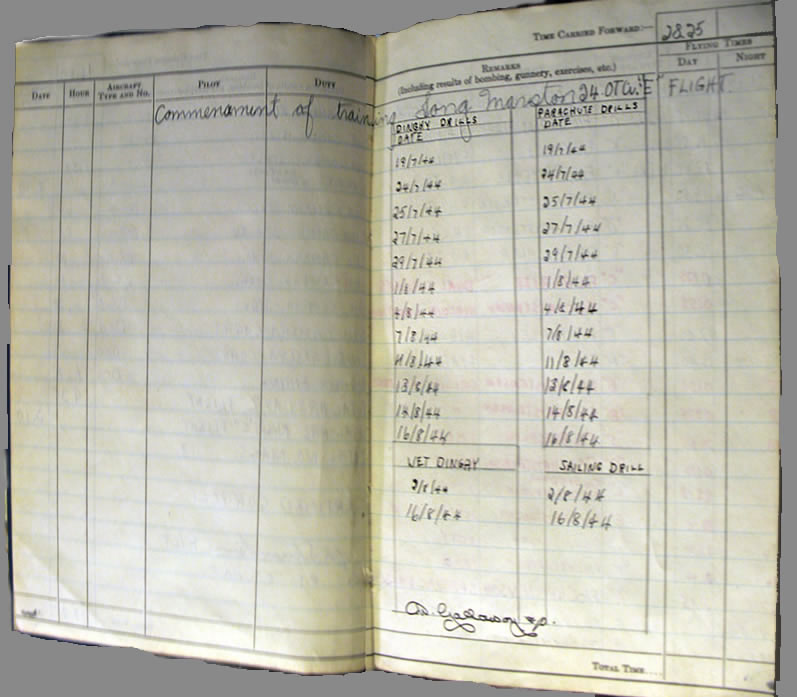 TIME CARRIED FORWARD:— 2825
DATE HOUR AIRCRAFT TYPE AND NO. PILOT DUTY
REMARKS
(Including results of bombing, gunnery, exercises, etc.)
FLYING TIMES
DAY NIGHT
Commenament of training Long Marston 24. OTU. "E" FLIGHT.
DINGHY DRILLS DATE PARACHUTE DRILLS DATE
19/7/44 19/7/44
24/7/44 24/7/44
25/7/44 25/7/44
27/7/44 27/7/44
29/7/44 29/7/44
1/8/44 1/8/44
4/8/44 4/8/44
7/8/44 7/8/44
11/8/44 11/8/44
13/8/44 13/8/44
14/8/44 14/8/44
16/8/44 16/8/44
WET DINGHY SAILING DRILL
2/8/44 2/8/44
16/8/44 16/8/44
Galloway
TOTAL TIME